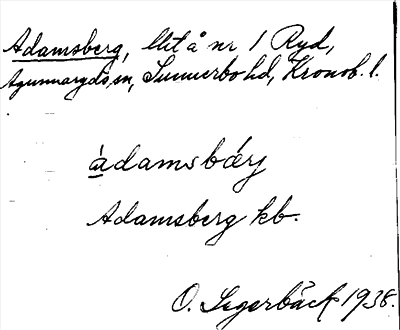 Adamsberg, lht å nr 1 Ryd,
Agunnaryds sn, Sunnerbo hd, Kronob. l.
àdamsbœrj
Adamsberg kb.
O. Segerbäck 1938.